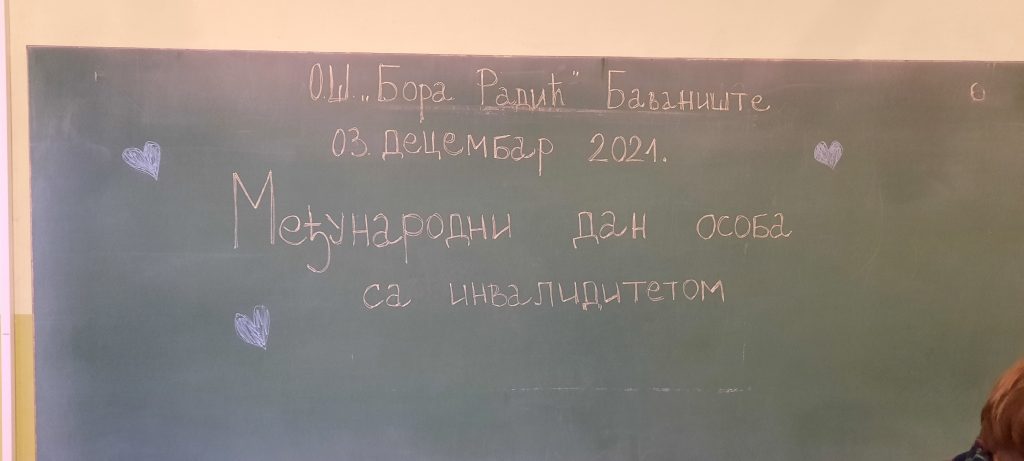 О.Ш. „Бора Радић" Баваниште
03. децембар 2021.
Међународни дан особа
са инвалидитетом